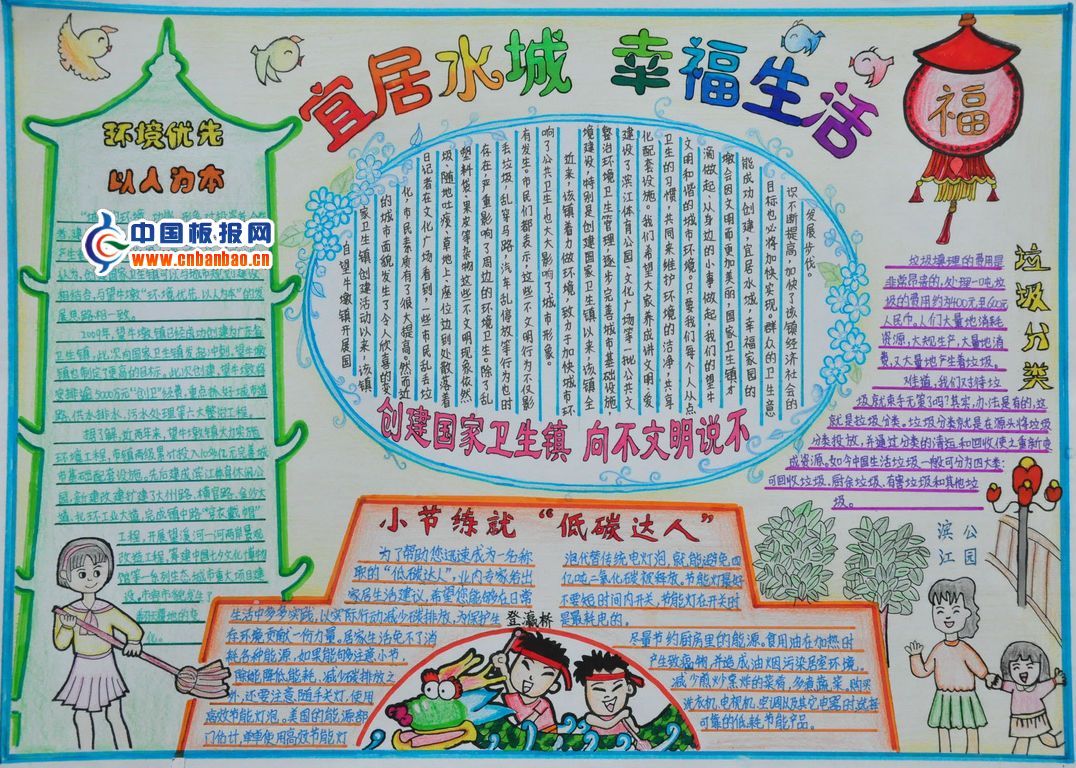 宜居水城 幸福生活
环境优先
以人为本
中国板报网
www.cnbanbao.cn
相结合,与望牛墩"环境优先,以人为本"的发
展思路相一致。
2009年,望牛墩镇已经成功创建为广东省
卫生镇,此次向国家卫生镇发起冲刺,望牛墩
镇也制定了更高的目标。此次创建,望牛墩将
安排逾5000万元"创卫"经费,重点抓好城市道
路、供水排水、污水处理等六大整治工程。
据了解,近两年来,望牛墩镇大力实施
环境工程,市镇两级累计投入
市基础配套设施。先后建成滨江体育休闲公
园,新建改建扩建3大州路、横官路、金沙大
道、北环工业大道,完成镇中路"穿衣戴帽"
工程,开展望溪河一河两岸景观
改造工程,筹建中国七夕文化博物
馆等一系列生态城市重大项目建
设,市容市貌发生了
翻天覆地的变
化。
自望牛墩镇开展国
家卫生镇创建活动以来,该镇
的城市面貌发生了令人欣喜的变
化,市民素质有了很大提高。然而近
日记者在文化广场看到,一些市民乱丢垃
圾、随地吐痰、草地上、座位边到处散落着
塑料袋、果皮等杂物,这些不文明现象依然
存在,严重影响了周边的环境卫生。除了乱
丢垃圾,乱穿马路,汽车乱停放等行为也时
有发生。市民们都表示,这些不文明行为不但影
响了公共卫生,也大大影响了城市形象。
近来,该镇着力做好环境,致力于加快城市环
境建设,特别是创建国家卫生镇以来,该镇全
整治环境卫生管理,逐步完善城市基础设施,
建设了滨江体育公园、文化广场等一批公共文
化配套设施。我们希望大家养成讲文明、爱
卫生的习惯,共同来维护环境的洁净,共享
文明和谐的城市环境。只要我们每个人从点
滴做起,从身边的小事做起,我们的望牛
墩会因文明而更加美丽,国家卫生镇才
能成功创建,宜居水城,幸福家园的
目标也必将加快实现。群众的卫生意
识不断提高,加快了该镇经济社会的
发展步伐。
创建国家卫生镇 向不文明说不
福
垃圾分类
垃圾填埋的费用是
非常昂贵的,处理一吨垃
圾的费用约为400元至600元
人民币。人们大量地消耗
资源,大规模生产,大量地消
费,又大量地产生着垃圾。
难道,我们对待垃
圾就束手无策了吗?其实,办法是有的,这
就是垃圾分类。垃圾分类就是在源头将垃圾
分类投放,并通过分类的清运和回收使之重新变
成资源。如今中国生活垃圾一般可分为四大类:
可回收垃圾、厨余垃圾、有害垃圾和其他垃
圾。
滨江
公园
小节练就"低碳达人"
为了帮助您迅速成为一名称
职的"低碳达人",业内专家给出
家居生活建议,希望您能够在日常
生活中多多实践,以实际行动减少碳排放,为保护生
存环境贡献一份力量。居家生活免不了消
耗各种能源,如果能够注意小节,
除能降低能耗,减少碳排放之
外,还要注意随手关灯,使用
高效节能灯泡。美国的能源部
门估计,单单使用高效节能灯
泡代替传统电灯泡,就能避免四
亿吨二氧化碳被释放。节能灯最好
不要短时间内开关,节能灯在开关时
是最耗电的。
尽量节约厨房里的能源。食用油在加热时
产生致癌物,并造成油烟污染居室环境。
减少煎炒烹炸的菜肴,多煮蔬菜。购买
洗衣机、电视机、空调以及其它电器时,选择
可靠的低耗节能产品。
登瀛桥